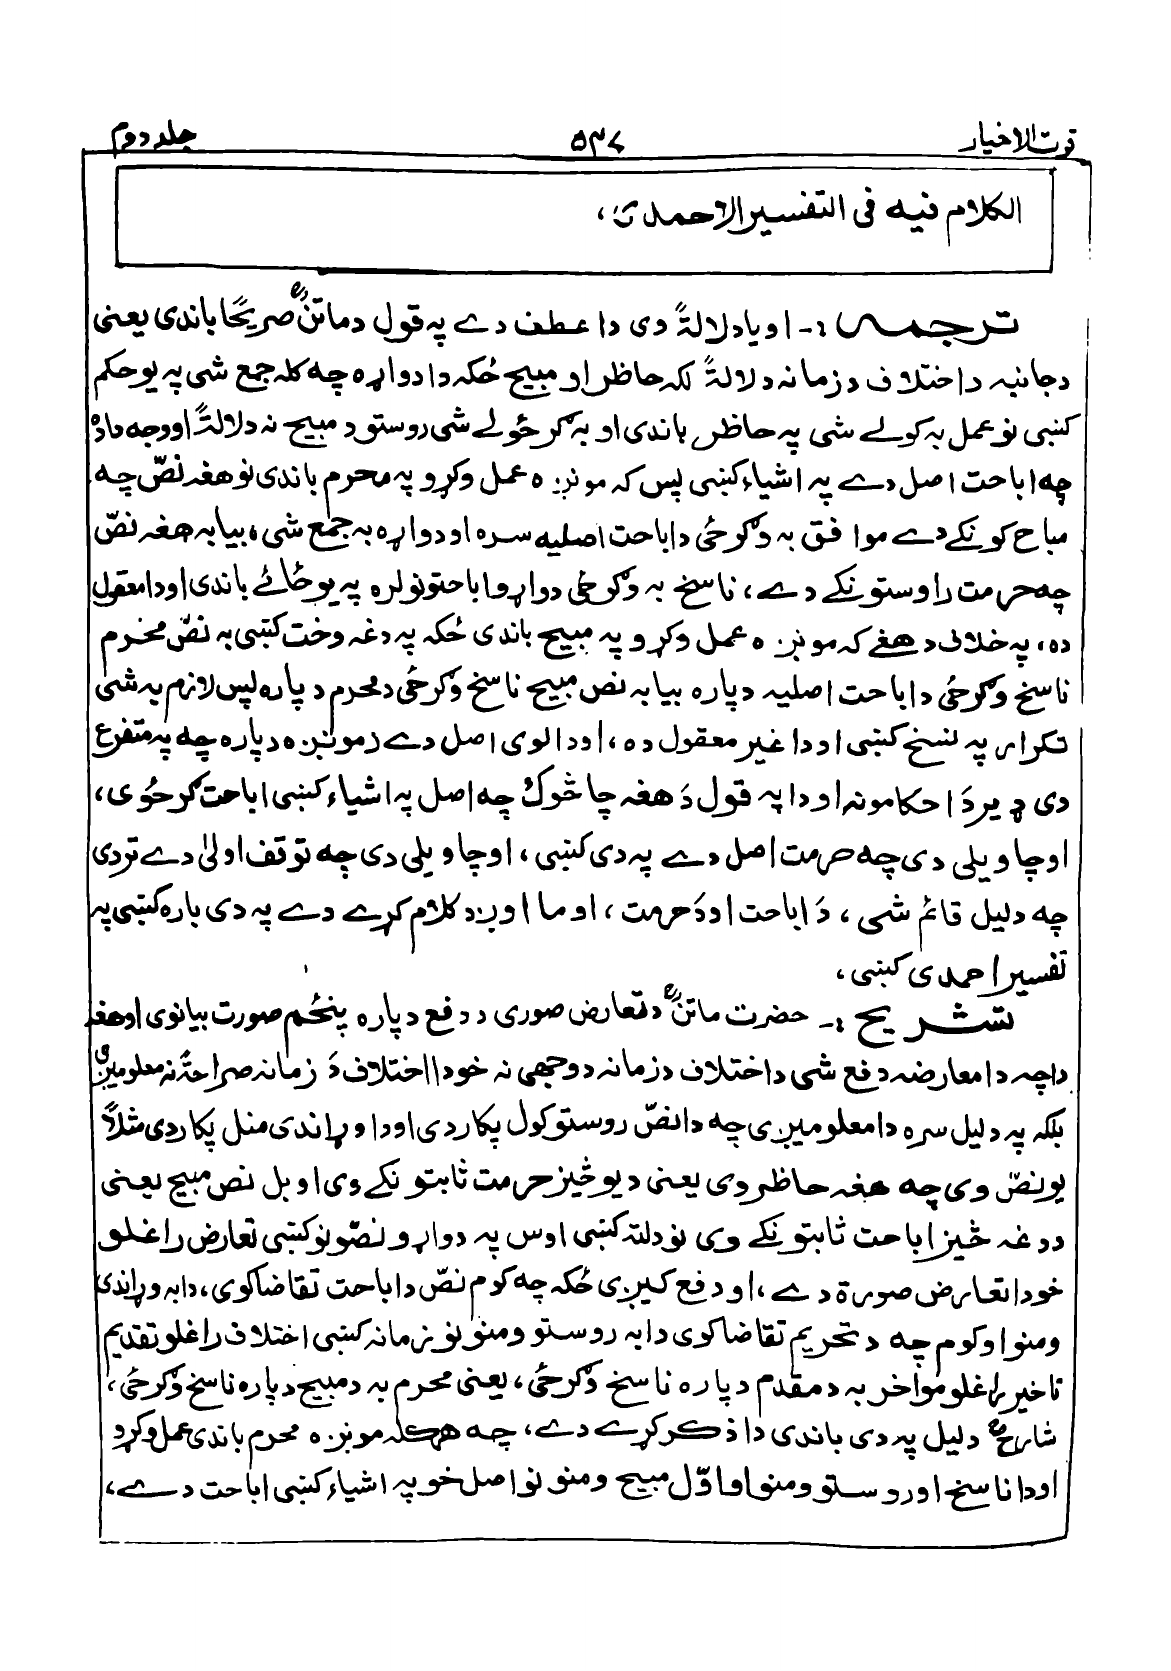 قوت الاخیار ۵۳۷ جلد دوم
الکلام فیه فی التفسیر الاحمدی،
ترجمہ :- او یا دلالۃً دی دا عطف دے پہ قول د ماتنؒ صریحًا باندی یعنی
د جانبہ د اختلاف د زمانہ دلالۃً لکہ حاظر او مبیح ځکہ دا دواړہ چہ کلہ جمع شی پہ یو حکم
کښی نو عمل بہ کولے شی پہ حاظر باندی او بہ ګرځولے شی روستو د مبیح نہ دلالۃً او وجہ دادہ
چہ اباحت اصل دے پہ اشیاء کښی پس کہ مونږہ عمل وکړو پہ محرم باندی نو هغہ نصّ چہ
مباح کونکے دے موافق بہ وګرځی د اباحت اصلیہ سرہ او دواړہ بہ جمع شی، بیا بہ هغہ نصّ
چہ حرمت راوستونکے دے، ناسخ بہ وګرځی دواړو اباحتونو لرہ پہ یو ځائے باندی او دا معقول
دہ، پہ خلاف د هغے کہ مونږہ عمل وکړو پہ مبیح باندی ځکہ پہ دغہ وخت کښی بہ نصّ محرم
ناسخ وګرځی د اباحت اصلیہ دپارہ بیا بہ نص مبیح ناسخ وګرځی د محرم دپارہ پس لازم بہ شی
تکرار پہ نسخ کښی او دا غیر معقول دہ، او دا لوی اصل دے زمونږہ دپارہ چہ پہ متفرع
دی ډیر دَ احکامونہ او دا پہ قول دَ هغہ چا څوک چہ اصل پہ اشیاء کښی اباحت ګرځوی،
او چا ویلی دی چہ حرمت اصل دے پہ دی کښی، او چا ویلی دی چہ توقف اولیٰ دے تر دی
چہ دلیل قائم شی، دَ اباحت او دَ حرمت، او ما اوږد کلام کړے دے پہ دی بارہ کښی پہ
تفسیر احمدی کښی،
تشریح :- حضرت ماتنؒ د تعارض صوری د دفع دپارہ پنځم صورت بیانوی او هغہ
داچہ دا معارضہ دفع شی د اختلاف د زمانہ د وجهی نہ خو دا اختلاف دَ زمانہ صراحتًا نہ معلومیږی
بلکہ پہ دلیل سرہ دا معلومیږی چہ دا نصّ روستو کول پکار دی او دا وړاندی منل پکار دی مثلاً
یو نصّ وی چہ هغہ حاظر وی یعنی د یو څیز حرمت ثابتونکے وی او بل نص مبیح یعنی
د دغہ څیز اباحت ثابتونکے وی نو دلتہ کښی اوس پہ دواړو نصّونو کښی تعارض راغلو
خو دا تعارض صورۃ دے، او دفع کیږی ځکہ چہ کوم نصّ د اباحت تقاضا کوی، دا بہ وړاندی
ومنو او کوم چہ د تحریم تقاضا کوی دا بہ روستو ومنو نو زمانہ کښی اختلاف راغلو تقدیم
تاخیر راغلو مواخر بہ د مقدم دپارہ ناسخ وګرځی، یعنی محرم بہ د مبیح دپارہ ناسخ وګرځی،
شارحؒ دلیل پہ دی باندی دا ذکر کړے دے، چہ هرکلہ مونږہ محرم باندی عمل وکړو
او دا ناسخ او روستو ومنو او اوّل مبیح ومنو نو اصل خو پہ اشیاء کښی اباحت دے،